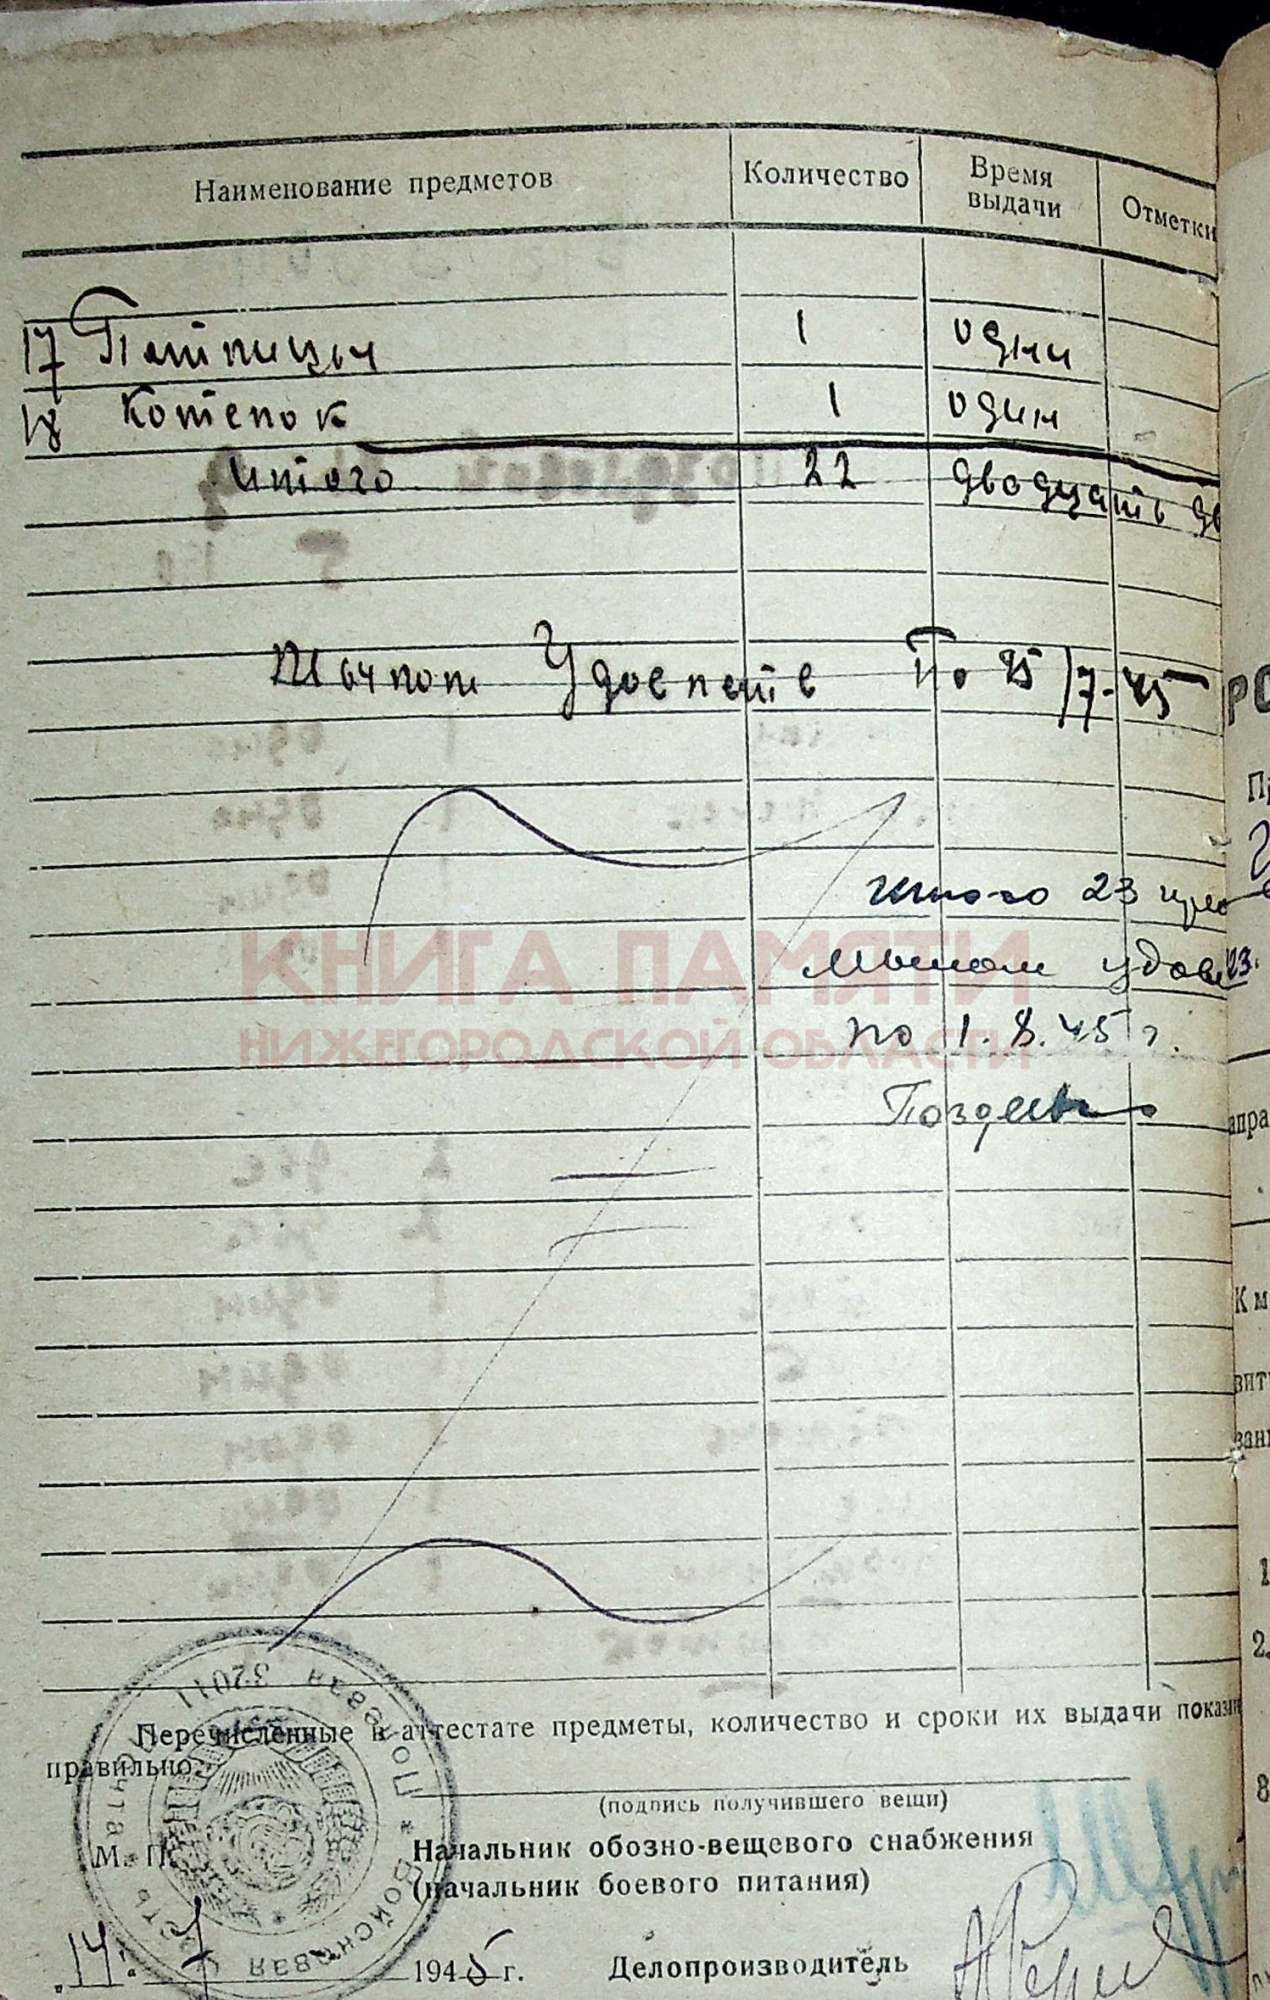 Наименование предметов Количество Время выдачи Отметки
17 Петлицы 1 одни
18 Котелок 1 один
Итого 22 двадцать дв
Мылом Удовлетв По 25/7-45
Итого 23
мылом удов
23.
по 1.8.45 г.
Поздеев
КНИГА ПАМЯТИ
НИЖЕГОРОДСКОЙ ОБЛАСТИ
Перечисленные в аттестате предметы, количество и сроки их выдачи показан
правильно:
(подпись получившего вещи)
М. П. Начальник обозно-вещевого снабжения
(начальник боевого питания)
14. 7 1945 г. Делопроизводитель
* Войсковая часть Полевая почта 32011
РО
апра
К м
вит
зан
1
2.
8